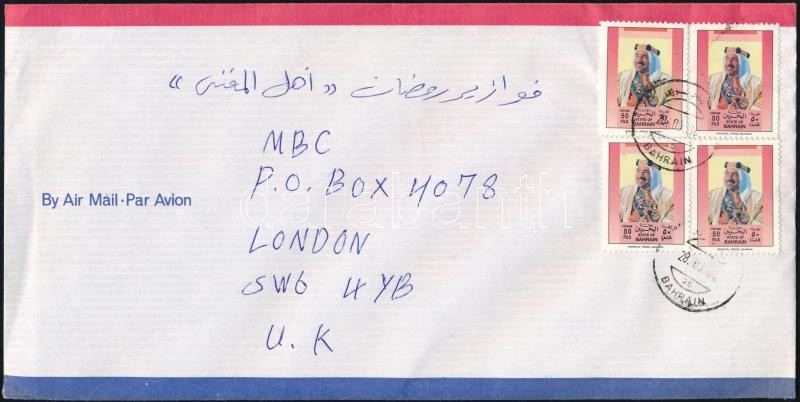 فوازير رمضان "أهل المغنى"
MBC
P.O. BOX 4078
LONDON
SW6 4YB
U.K
By Air Mail · Par Avion
50 FILS
دولة البحرين
STATE OF BAHRAIN
٥٠ فلسا
50 FILS
دولة البحرين
STATE OF BAHRAIN
٥٠ فلسا
50 FILS
دولة البحرين
STATE OF BAHRAIN
٥٠ فلسا
50 FILS
دولة البحرين
STATE OF BAHRAIN
٥٠ فلسا
26
BAHRAIN
26
BAHRAIN
darabanth